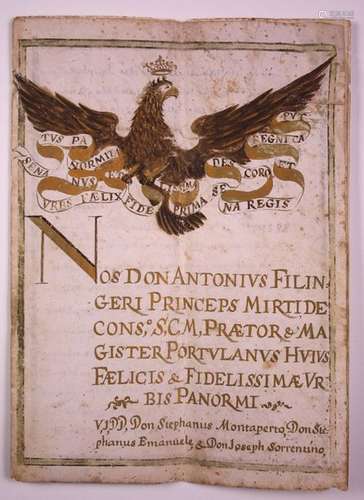 TVS PA
NORMITA
NVS
SENA
VRBS FÆLIX
ET
FIDE
LISSIMA
PRIMA SE
DES
CORO
ET
REGNI CA
PVT
NA REGIS
NOS DON ANTONIVS FILIN-
GERI PRINCEPS MIRTI, DE
CONS.º S.C.M, PRÆTOR & MA-
GISTER PORTVLANVS HVIVS
FÆLICIS & FIDELISSIMÆ VR-
BIS PANORMI
Don Stephanus Montaperto, Don Ste-
phanus Emanuele, & Don Joseph Sorrentino,